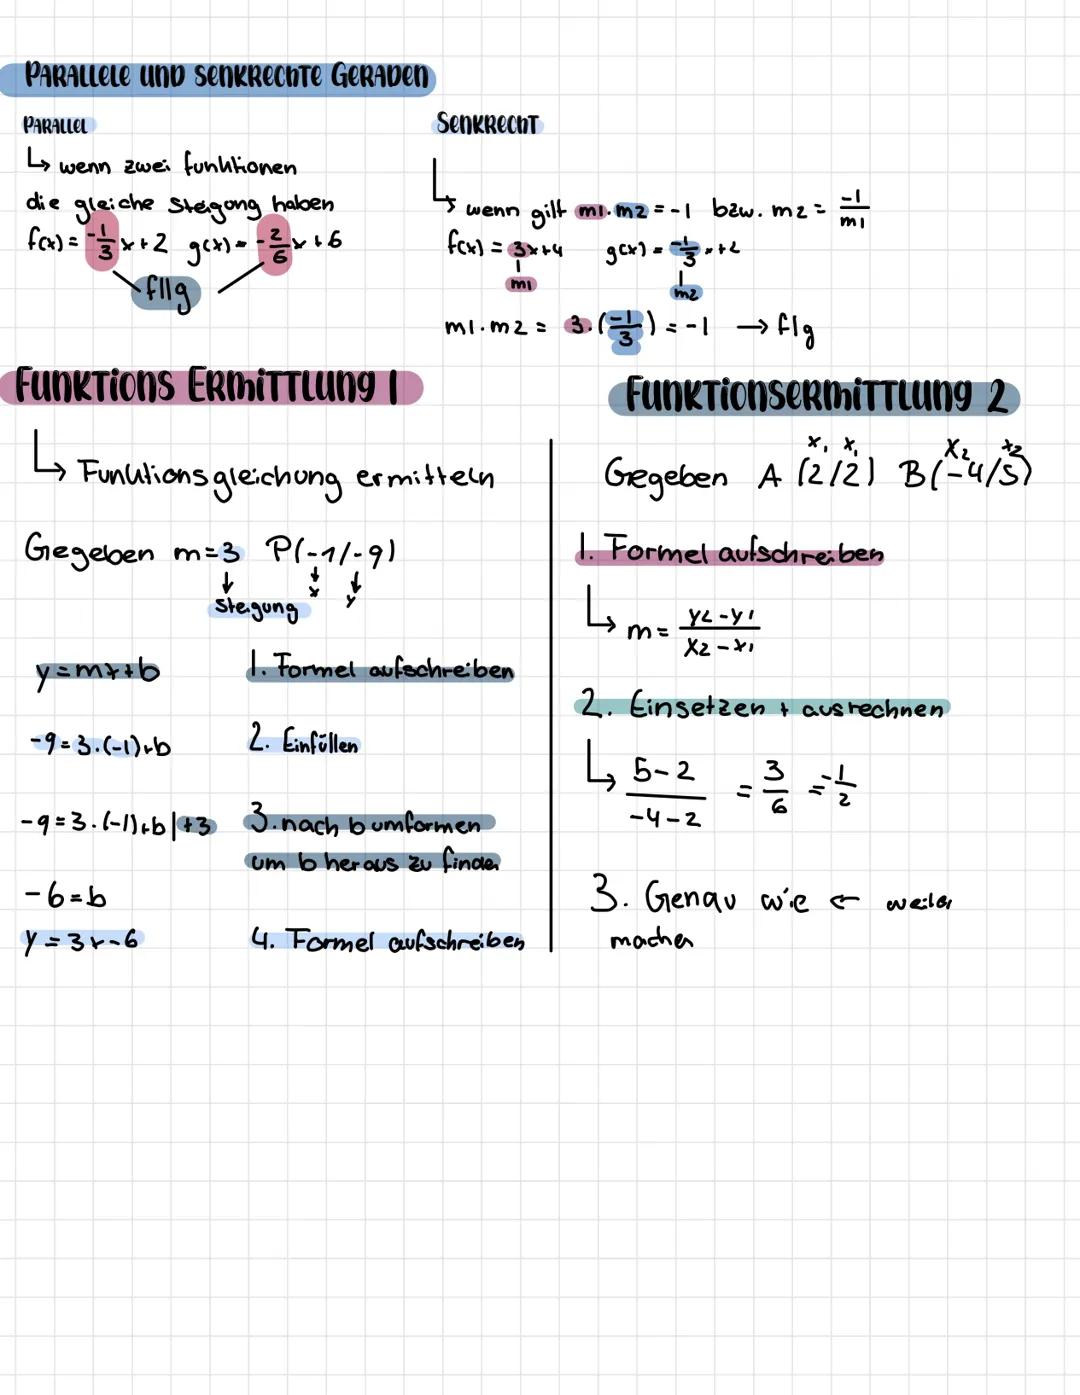 PARALLELE UND SENKRECHTE GERADEN
PARALLEL
↳ wenn zwei funktionen
die gleiche Steigung haben
f(x) = -1/3 x + 2 g(x) = -2/6 x + 6
f||g
SENKRECHT
↳ wenn gilt m1·m2 = -1 bzw. m2 = -1/m1
f(x) = 3x+4 g(x) = -1/3 x+2
m1 m2
m1·m2 = 3·(-1/3) = -1 → f⊥g
FUNKTIONS ERMITTLUNG 1
↳ Funktionsgleichung ermitteln
Gegeben m=3 P(-1/-9)
↓ ↓ ↓
Steigung x y
y=mx+b 1. Formel aufschreiben
-9=3·(-1)+b 2. Einfüllen
-9=3·(-1)+b |+3 3. nach b umformen
um b heraus zu finden
-6=b
y=3x-6 4. Formel aufschreiben
FUNKTIONSERMITTLUNG 2
x1 x1 x2 x2
Gegeben A (2/2) B(-4/5)
1. Formel aufschreiben
↳ m = y2-y1/x2-x1
2. Einsetzen + ausrechnen
↳ 5-2/-4-2 = 3/6 = -1/2
3. Genau wie ← weiter
machen